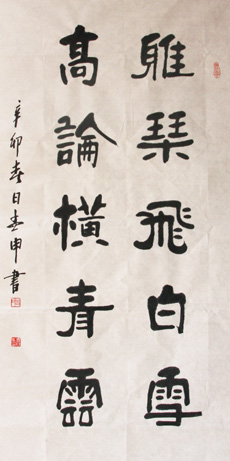 雅琴飛白雪
高論橫青雲
辛卯春日春申書